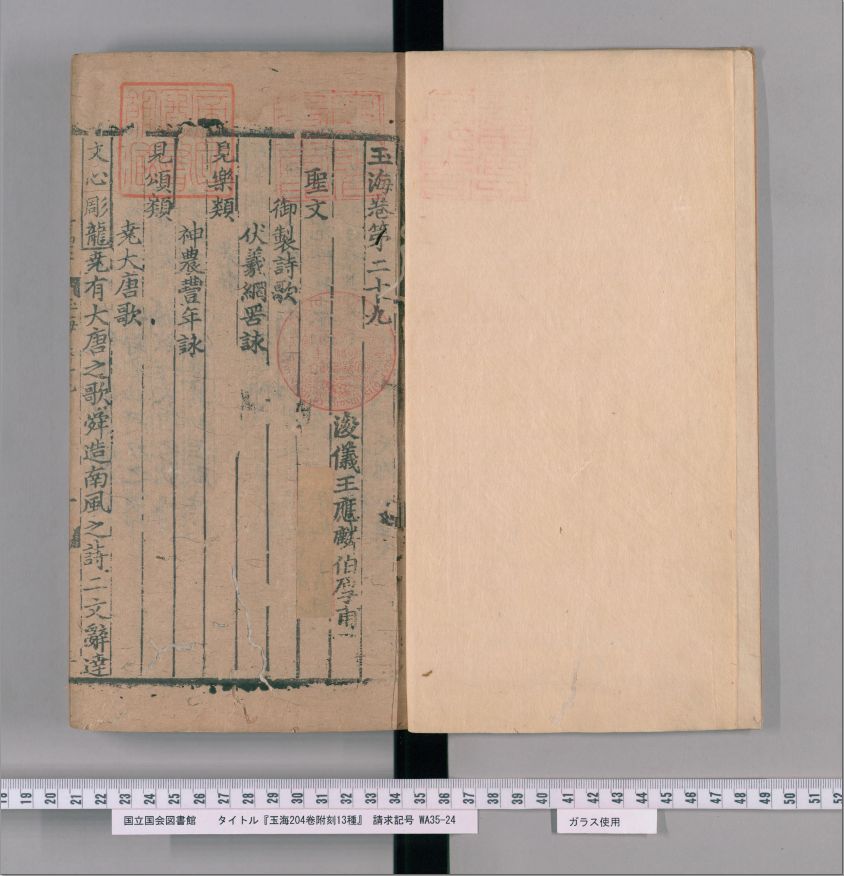 玉海卷第二十九
浚儀王應麟伯厚甫
聖文
御製詩歌
伏羲網罟詠
見樂類
神農豐年詠
見頌類
堯大唐歌
文心彫龍堯有大唐之歌舜造南風之詩二文辭達
18 19 20 21 22 23 24 25 26 27 28 29 30 31 32 33 34 35 36 37 38 39 40 41 42 43 44 45 46 47 48 49 50 51 52
国立国会図書館 タイトル『玉海204巻附刻13種』 請求記号 WA35-24
ガラス使用